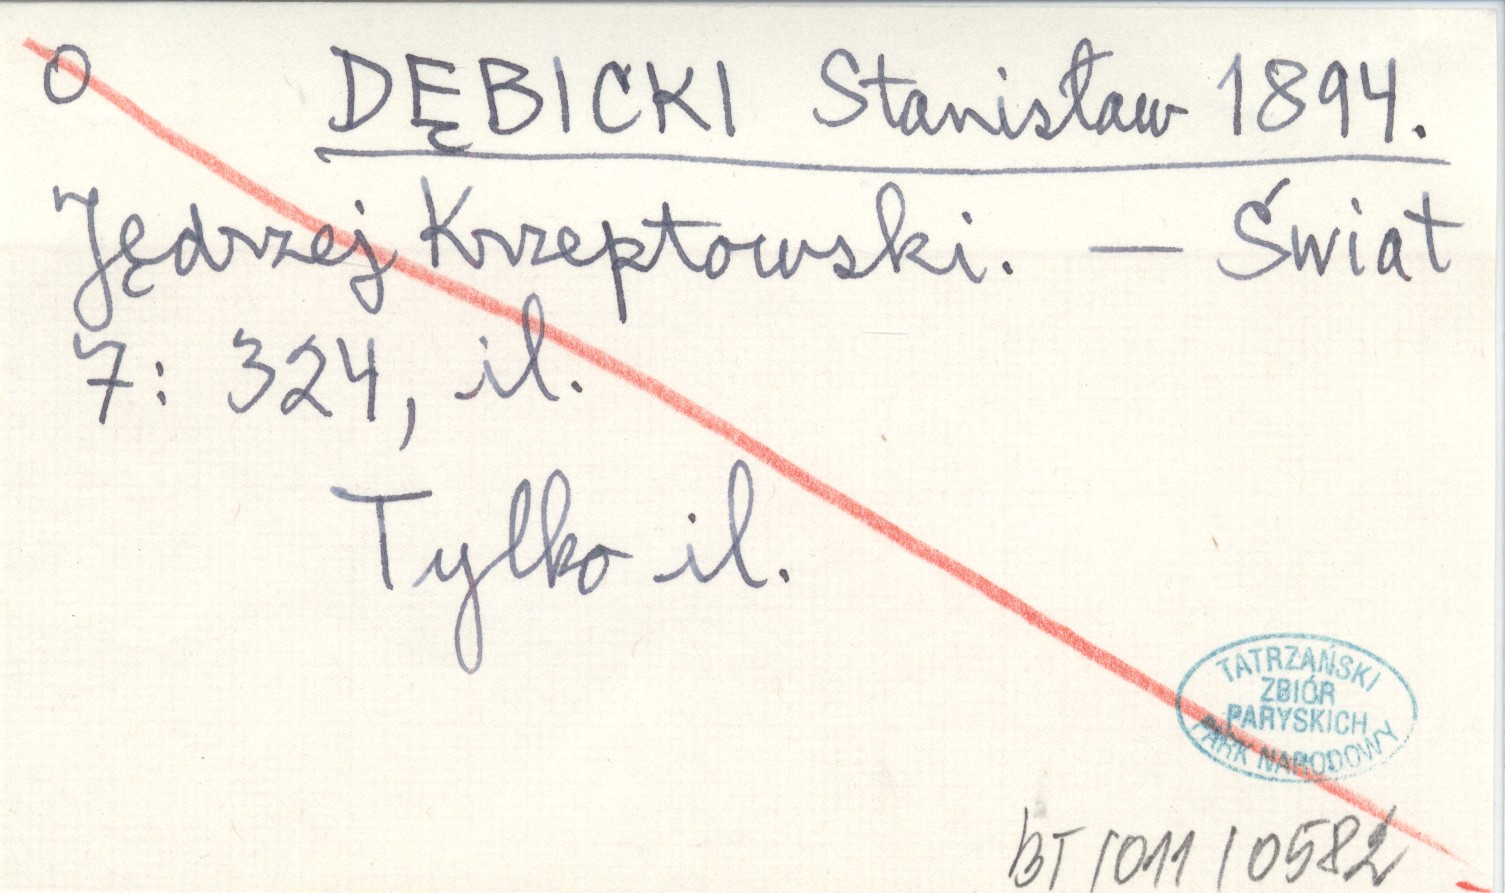 O DĘBICKI Stanisław 1894.
Jędrzej Krzeptowski. — Świat
7: 324, il.
Tylko il.
TATRZAŃSKI
ZBIÓR
PARYSKICH
PARK NARODOWY
BT/011/0582